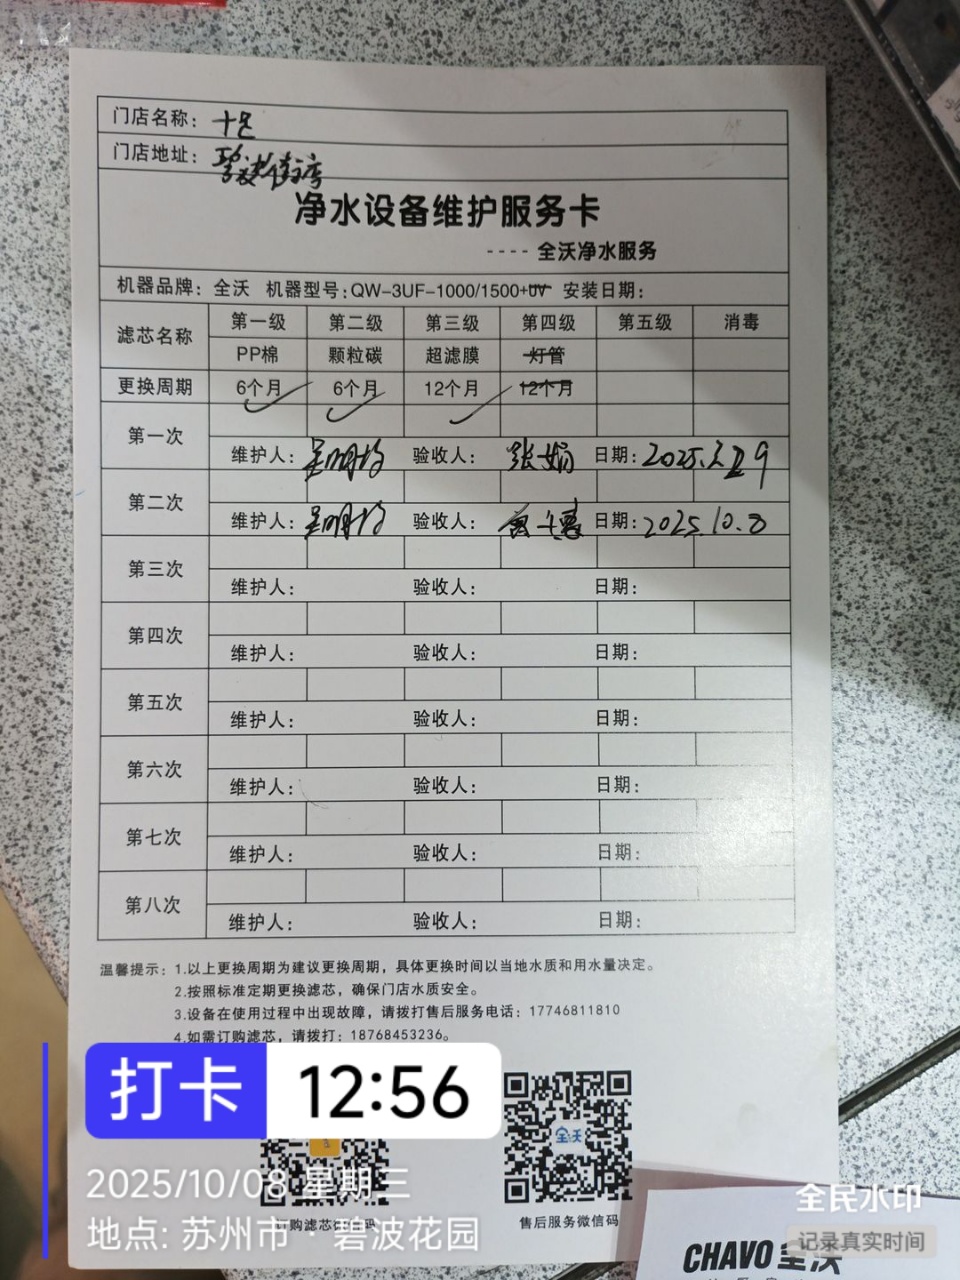 门店名称：十足
门店地址：
净水设备维护服务卡
---- 全沃净水服务
机器品牌：全沃 机器型号：QW-3UF-1000/1500+UV 安装日期：
滤芯名称 第一级 第二级 第三级 第四级 第五级 消毒
PP棉 颗粒碳 超滤膜 灯管
更换周期 6个月 6个月 12个月 12个月
第一次
维护人：吴明均 验收人：张娟 日期：2025. 29
第二次
维护人：吴明均 验收人： 日期：2025.10.8
第三次
维护人： 验收人： 日期：
第四次
维护人： 验收人： 日期：
第五次
维护人： 验收人： 日期：
第六次
维护人： 验收人： 日期：
第七次
维护人： 验收人： 日期：
第八次
维护人： 验收人： 日期：
温馨提示：1.以上更换周期为建议更换周期，具体更换时间以当地水质和用水量决定。
2.按照标准定期更换滤芯，确保门店水质安全。
3.设备在使用过程中出现故障，请拨打售后服务电话：17746811810
4.如需订购滤芯，请拨打：18768453236。
打卡 12:56
2025/10/08 星期三
地点：苏州市·碧波花园
售后服务微信码
全沃
全民水印
记录真实时间
CHAVO 全沃